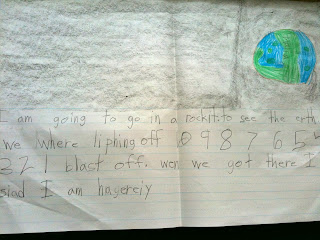 I am going to go in a rockit. to see the erth
we where liphing off 10 9 8 7 6 5 4
3 2 1 blast off. wen we got there I
siad I am hagereiy